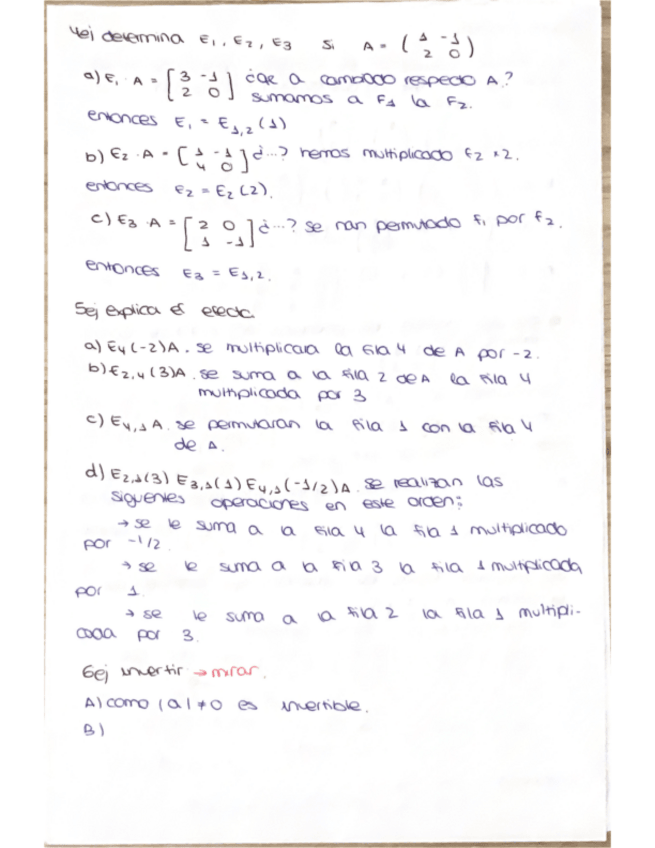 4ej determina E₁, E₂, E₃ Si A = ( 1 -1
2 0 )
a) E₁ · A = [ 3 -1
2 0 ] ¿qe a cambiado respecto A?
sumamos a F1 la F2.
entonces E₁ = E₁,₂ (1)
b) E₂ · A = [ 1 -1
4 0 ] ¿...? hemos multiplicado f2 x 2.
entonces E₂ = E₂ (2).
c) E₃ · A = [ 2 0
1 -1 ] ¿...? se han permutado f₁ por f2.
entonces E₃ = E₁,₂.
5ej explica el efecto.
a) E₄ (-2) A. se multiplicara la fila 4 de A por -2.
b) E₂,₄ (3) A. se suma a la fila 2 de A la fila 4
multiplicada por 3
c) E₄,₁ A. se permutaran la fila 1 con la fila 4
de A.
d) E₂,₁(3) E₃,₁(1) E₄,₁(-1/2) A. se realizan las
siguientes operaciones en este orden:
→ se le suma a la fila 4 la fila 1 multiplicado
por -1/2.
→ se le suma a la fila 3 la fila 1 multiplicada
por 1.
→ se le suma a la fila 2 la fila 1 multipli-
cada por 3.
6ej invertir → mirar.
A) como |a| ≠ 0 es invertible.
B)